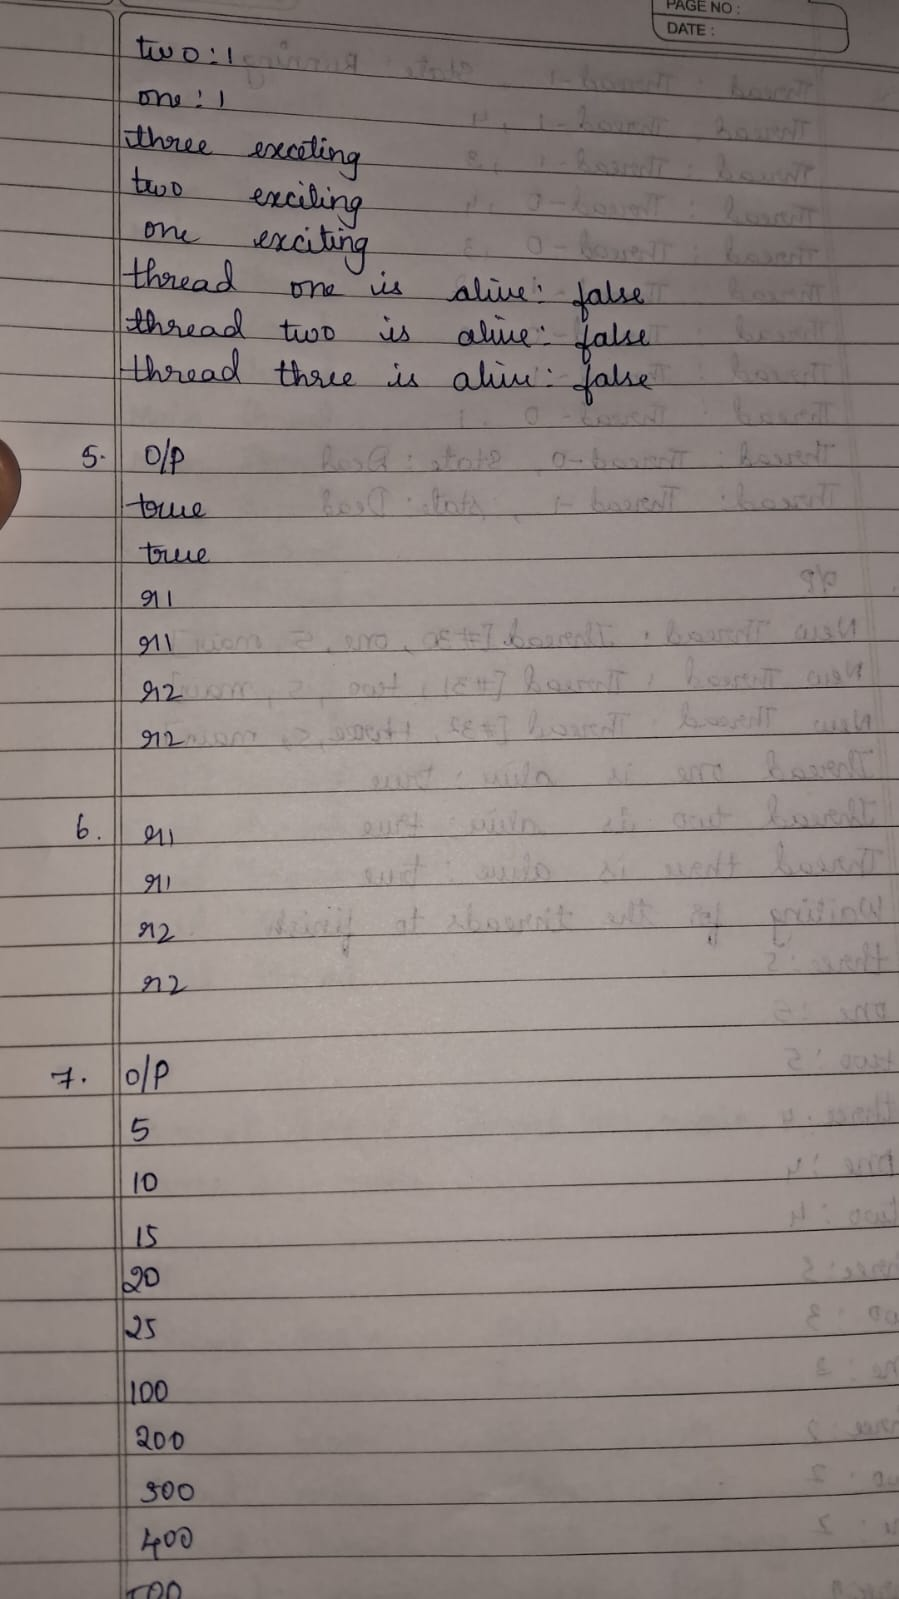 PAGE NO :
DATE :
two : 1
one : 1
three exceting
two exciling
one exciting
thread one is alive : false
thread two is alive : false
thread three is alive : false
5. O/P
true
true
r1
r1
r2
r2
6. r1
r1
r2
r2
7. O/P
5
10
15
20
25
100
200
300
400
500